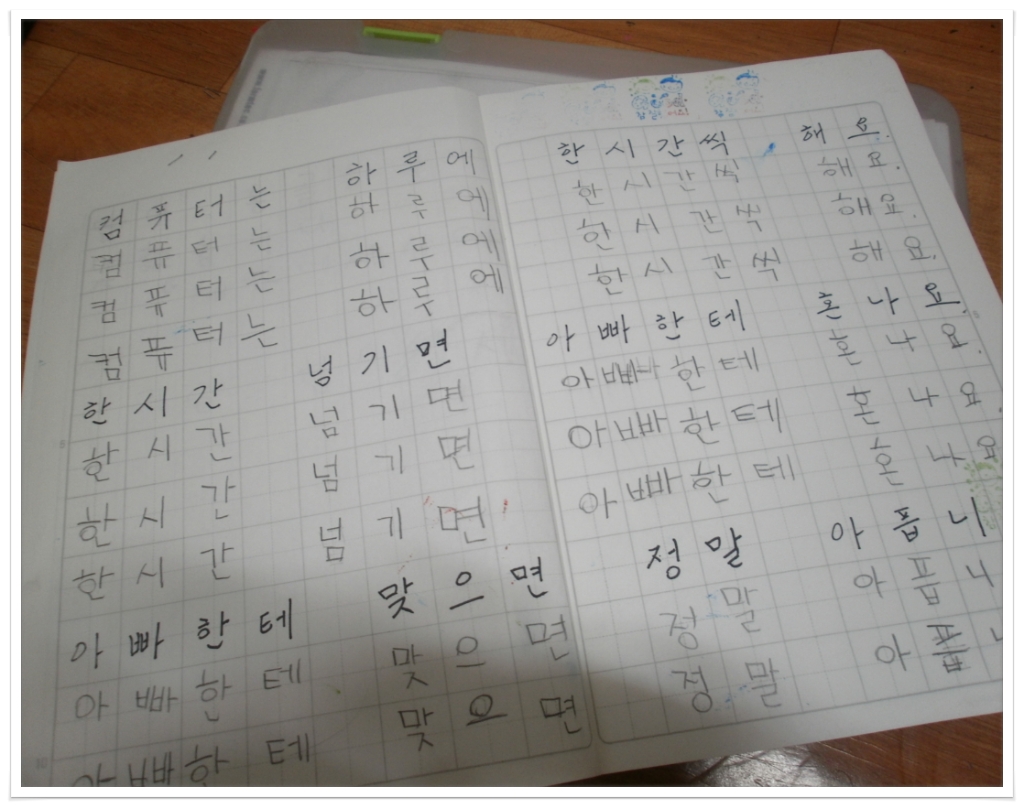 컴퓨터는 하루에
컴퓨터는 하루에
컴퓨터는 하루에
컴퓨터는 하루에
한시간 넘기면
한시간 넘기면
한시간 넘기면
한시간 넘기면
아빠한테 맞으면
아빠한테 맞으면
아빠한테 맞으면
한시간씩 해요.
한시간씩 해요.
한시간씩 해요.
한시간씩 해요.
아빠한테 혼나요.
아빠한테 혼나요.
아빠한테 혼나요.
아빠한테 혼나요
정말 아픕니
정말 아픕니
정말 아